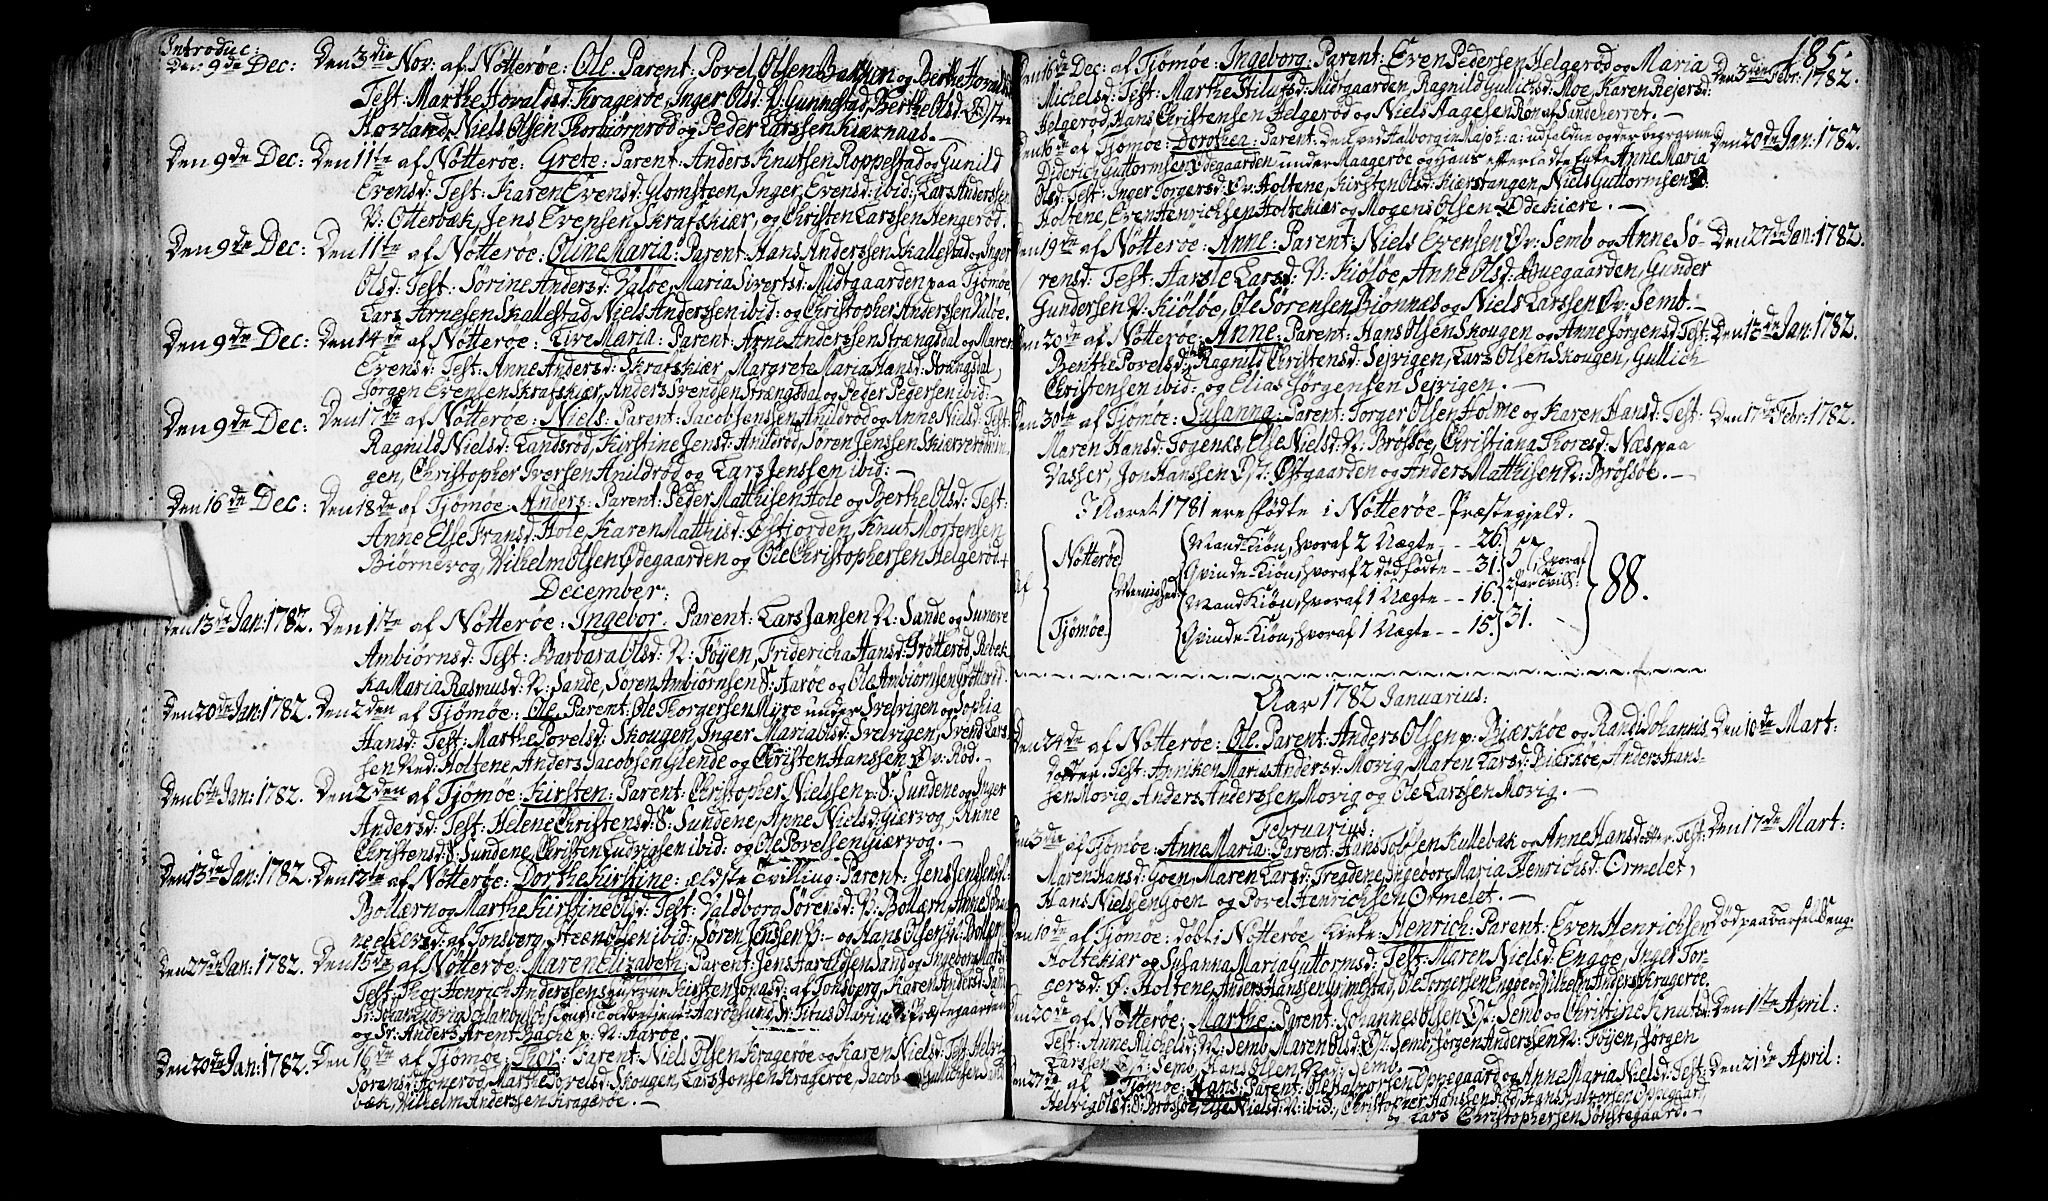 Introduc:
Den 9de Dec: Den 3die Nov: af Nötterøe: Ole. Parent: Povel Olsen Bakken og Berthe Hovalds
Test: Marthe Hovaldsd: Kragerøe, Inger Olsd: V: Gunnestad, Berthe Olsd: Østre
Hovland, Niels Olsen Thorbiørnrød og Peder Larssen Kiærnaas. –
Den 9de Dec: Den 11te af Nötterøe: Grete: Parent: Anders Knutsen Roppestad og Gunild
Evensd: Test: Karen Evensd: Glomsteen, Inger Evensd: ibid: Lars Anderssen
V: Otterbæk, Jens Evensen Skrafskiær, og Christen Larssen Hengerød.
Den 9de Dec: Den 11te af Nötterøe: Oline Maria: Parent: Hans Anderssen Skallestad og Inger
Olsd: Test: Sørine Andersd: Valøe, Maria Sivertsd: Midtgaarden paa Tjømøe,
Lars Arnesen Skallestad Niels Anderssen ibid: og Christopher Anderssen Valøe.
Den 9de Dec: Den 14de af Nötterøe: Live Maria: Parent: Arne Anderssen Strængsdal og Maren
Evensd: Test: Anne Andersd: Skrafskiær, Margrete Maria Hansd: Strangsdal,
Jørgen Evensen Skrafskiær, Anders Svendsen Strangsdal og Peder Pedersen ibid: –
Den 9de Dec: Den 17de af Nötterøe: Niels: Parent: Jacob Jenssen Anildrød og Anne Nielsd: Test:
Ragnild Nielsd: Landsrød, Kirstine Jensd: Anildrød, Søren Jenssen
gen, Christopher Iversen Anildrød og Lars Jenssen ibid: –
Den 16de Dec: Den 18de af Tjömøe Anders: Parent: Peder Mathisen Hole og Berthe Olsd: Test:
Anne Else Fransd: Hole Karen Matthisd: Østjorden, Knut Mortensen
Biørnevog, Wilhelm Olsen Ødegaarden og Ole Christophersen Helgerød. +
December:
Den 13de Jan: 1782. Den 1ste af Nötterøe: Ingebor. Parent: Lars Jansen N: Sande og
Ambiørnsd: Test: Barbara Olsd: N: Føyen, Fridericha Hansd: Grötterød, Rebek-
ka Maria Rasmusd: N: Sande, Søren Ambiørnsen S: Aarøe og Ole Ambiørnsen
Den 20de Jan: 1782. Den 2den af Tjömøe: Ole. Parent: Ole Thorgersen Myre under Svelvigen og Sophia
Hansd: Test: Marthe Povelsd: Skougen, Inger Maria Olsd: Svelvigen, Svend Lars-
sen Ned: Holtene Anders Jacobsen Glende og Christen Hanssen Øv: Rød. –
Den 6te Jan: 1782. Den 2den af Tjömøe: Kirsten: Parent: Christopher Nielssen v: S: Sundene og Inger
Andersd: Test: Helene Christensd: S: Sundene, Anne Nielsd: Giervog, Anne
Christensd: S: Sundene, Christen Ludvigsen ibid: og Ole Povelsen Giærvog. –
Den 13de Jan: 1782. Den 12te af Nötterøe: Dorthe Kirstine: ældste Tvilling: Parent: Jens Jensen N:
Bollærn og Marthe Kirstine Olsd: Test: Valdborg Sørensd: N: Bollærn, Anne
af Tonsberg, Steen Olsen ibid: Søren Jenssen og Hans Olsen
Den 27de Jan: 1782. Den 15de af Nötterøe: Maren Elizabeth: Parent: Jens Haraldsen Sand og Ingebor
Test: Thor Henrich Anderssens Kirsten Jonasd: af Tonsberg, Karen Andersd: Sand
og Sr: Anders Arent Bache p: N: Aarøe
Den 20de Jan: 1782. Den 16de af Tjömøe: Thor: Parent: Niels Olsen Kragerøe og Karen Nielsd: Test:
Sørensd: Honerød, Marthe Povelsd: Skougen, Lars Jonsen Kragerøe, Jacob Gullichsen Sand-
bæk, Wilhelm Anderssen Kragerøe. –
185.
Den 16de Dec: af Tjömøe: Ingeborg: Parent: Even Pedersen Helgerød og Maria Den 3die Febr: 1782.
Michelsd: Test: Marthe Midtgaarden, Ragnild Gullichsd: Moe, Karen Rejersd:
Helgerød, Hans Christensen Helgerød og Niels Aagesen Røn af Sandeherret. –
Den 16de af Tjömøe: Dorothea: Parent: Den udfaldne og der begravne Den 20de Jan: 1782.
Diderich Guttormsen Ødegaarden under Maagerøe og Hans efterladte Enke Anne Maria
Olsd: Test: Inger Torgersd: Øv: Holtene, Kirsten Olsd: Kiærstangen, Niels Guttormsen Ø:
Holtene, Even Henrichsen Holtekiær og Mogens Olsen Ødekiære. –
Den 19de af Nötterøe: Anne: Parent: Niels Evensen Øv: Semb og Anne Sø- Den 27de Jan: 1782.
rensd: Test: Larsd: N: Kiøløe, Anne Olsd: Buegaarden, Gunder
Gundersen N: Kiøløe, Ole Sørensen Bjönnæs og Niels Larssen Øv: Semb. –
Den 20de af Nötterøe: Anne: Parent: Hans Olsen Skougen og Anne Jørgensd: Test: Den 13de Jan: 1782.
Benthe Povelsd: Ragnild Christensd: Sejvigen, Lars Olsen Skougen, Gullich
Christensen ibid: og Elias Jørgensen Sejvigen. –
Den 30te af Tjömøe: Susanna: Parent: Torger Olsen Holme og Karen Hansd: Test: Den 17de Febr: 1782.
Maren Hansd: Togenæs, Else Nielsd: N: Brøtsøe, Christiana Thoresd: Næs paa
Vasser, Jon Hanssen Øv: Østgaarden og Anders Matthisen N: Brøtsøe. –
I Aaret 1781 ere födte i Nötterøe Præstegjeld.
Af
Nötterøe
Tjömøe
Nemlighed:
Mand-Kiøn, hvoraf 2 Uægte, – – 26.
Qvinde-Kiøn, hvoraf 2 dödfödte – – 31.
57, hvoraf 2 Par Tvill:
Mand-Kiøn, hvoraf 1 Uægte – – 16.
Qvinde-Kiøn, hvoraf 1 Uægte – – 15.
31.
88.
Aar 1782 Januarius:
Den 24de af Nötterøe: Ole. Parent: Anders Olsen p: Bjærkøe og Randi Johannis Den 10de Mart:
dotter. Test: Anniken Maria Andersd: Movig, Maren Larsd: Bjerkøe, Anders Hans-
sen Movig, Anders Anderssen Movig og Ole Larssen Movig. –
Februarius:
Den 3de af Tjömøe: Anne Maria: Parent: Hans Tolofsen Kullebæk og Anne Hansdotter. Test: Den 17de Mart:
Maren Hansd: Goen, Maren Larsd: Tregdene, Ingeborg Maria Henrichsd: Ormelet,
Hans Nielsen Goen og Povel Henrichsen Ormelet. –
Den 10de af Tjömøe: döbt i Nötterøe Kirke: Henrich: Parent: Even Henrichsen Död paa Barselseng.
Holtekiær og Susanna Maria Guttormsd: Test: Maren Nielsd: Engøe, Inger Tor-
gersd: Ø: Holtene, Anders Hanssen Grimestad, Ole Torgersen Engøe og Wilhelm Anders: Kragerøe.
Den 20de af Nötterøe: Marthe: Parent: Johannes Olsen Øv: Semb og Christine Knutsd: Den 1ste April:
Test: Anne Michelsd: N: Semb, Maren Olsd: Øv: Semb, Jørgen Anderssen N: Föyen, Jørgen
Larssen Øv: Semb, Hans Olsen Ned: Semb.
Den 27de af Tjömøe: Hans: Parent: Ole Halvorsen Oppegaard og Anne Maria Nielsd: Test: Den 21de April:
Helvig Olsd: S: Brøtsøe, Else Nielsd: N: ibid:, Christopher Hanssen Rød, Hans Halvorsen Oppegaard,
og Lars Christophersen Sønstegaard. –